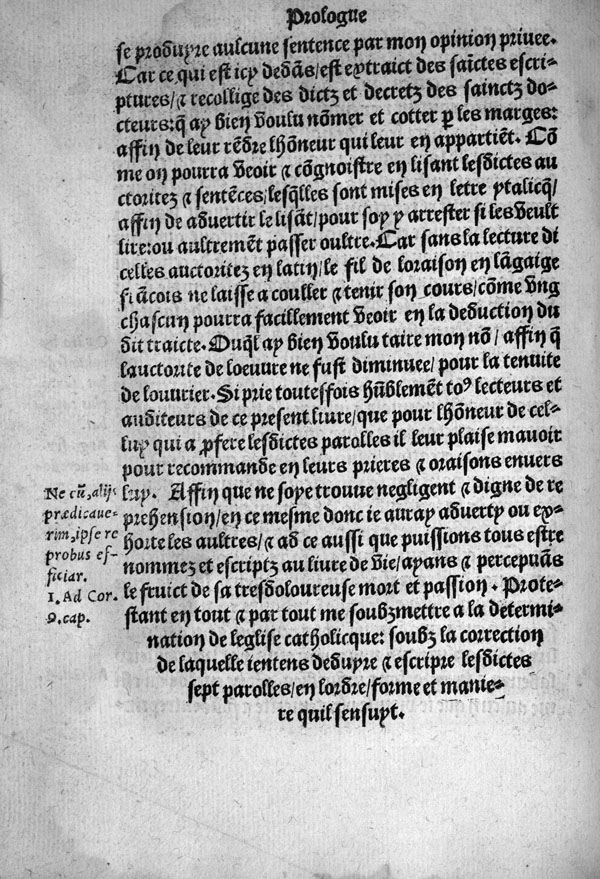 Prologue
se produyre aulcune sentence par mon opinion priuee.
Car ce qui est icy dedãs/est extraict des saĩctes escri-
ptures/⁊ recollige des dictz et decretz des sainctz do-
cteurs:q̃ ay bien voulu nõmer et cotter p̱ les marges:
affin de leur rẽdre lhõneur qui leur en appartiẽt. Cõ
me on pourra veoir ⁊ cõgnoistre en lisant lesdictes au
ctoritez ⁊ sentẽces/lesq̃lles sont mises en letre ytalicq̃/
affin de aduertir le lisãt/pour soy y arrester si les veult
lire:ou aultremẽt passer oultre. Car sans la lecture di
celles auctoritez en latin/le fil de loraison en lãgaige
frãcois ne laisse a couller ⁊ tenir son cours/cõme vng
chascun pourra facillement veoir en la deduction du
dit traicte. Ouq̃l ay bien voulu taire mon nõ/ affin q̃
lauctorite de loeuure ne fust diminuee/ pour la tenuite
de louurier. Si prie toutesfois hũblemẽt toꝰ lecteurs et
auditeurs de ce present liure/que pour lhõneur de cel-
luy qui a ꝓfere lesdictes parolles il leur plaise mauoir
pour recommande en leurs prieres ⁊ oraisons enuers
luy. Affin que ne soye trouue negligent ⁊ digne de re
prehension/en ce mesme donc ie auray aduerty ou ex-
horte les aultres/⁊ ad ce aussi que puissions tous estre
nommez et escriptz au liure de vie/ayans ⁊ percepuãs
le fruict de sa tresdoloureuse mort et passion. Prote-
stant en tout ⁊ par tout me soubzmettre a la determi-
nation de leglise catholicque: soubz la correction
de laquelle ientens deduyre ⁊ escripre lesdictes
sept parolles/en lordre/forme et manie-
re quil sensuyt.
Ne cũ, alijs
prædicaue-
rim, ipse re
probus ef-
ficiar.
1. Ad Cor.
9. cap.